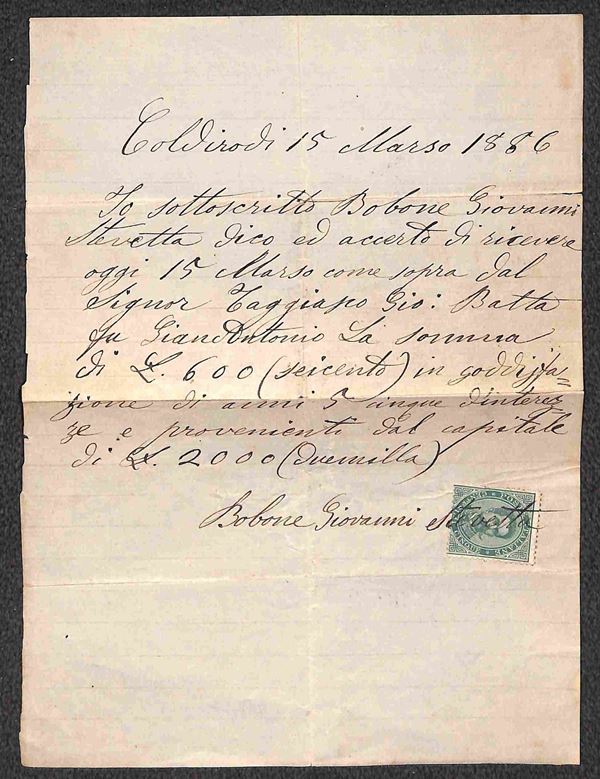 Coldirodi 15 Marso 1886
Io sottoscritto Bobone Giovanni
Stevetta dico ed accerto di ricevere
oggi 15 Marso come sopra dal
Signor Taggiasco Gio: Batta
fu GianAntonio La somma
di £. 600 (seicento) in soddisfa=
zione di anni 5 cinque d'interez
ze e provenienti dal capitale
di £. 2000 (duemilla)
Bobone Giovanni Stevetta
CINQUE